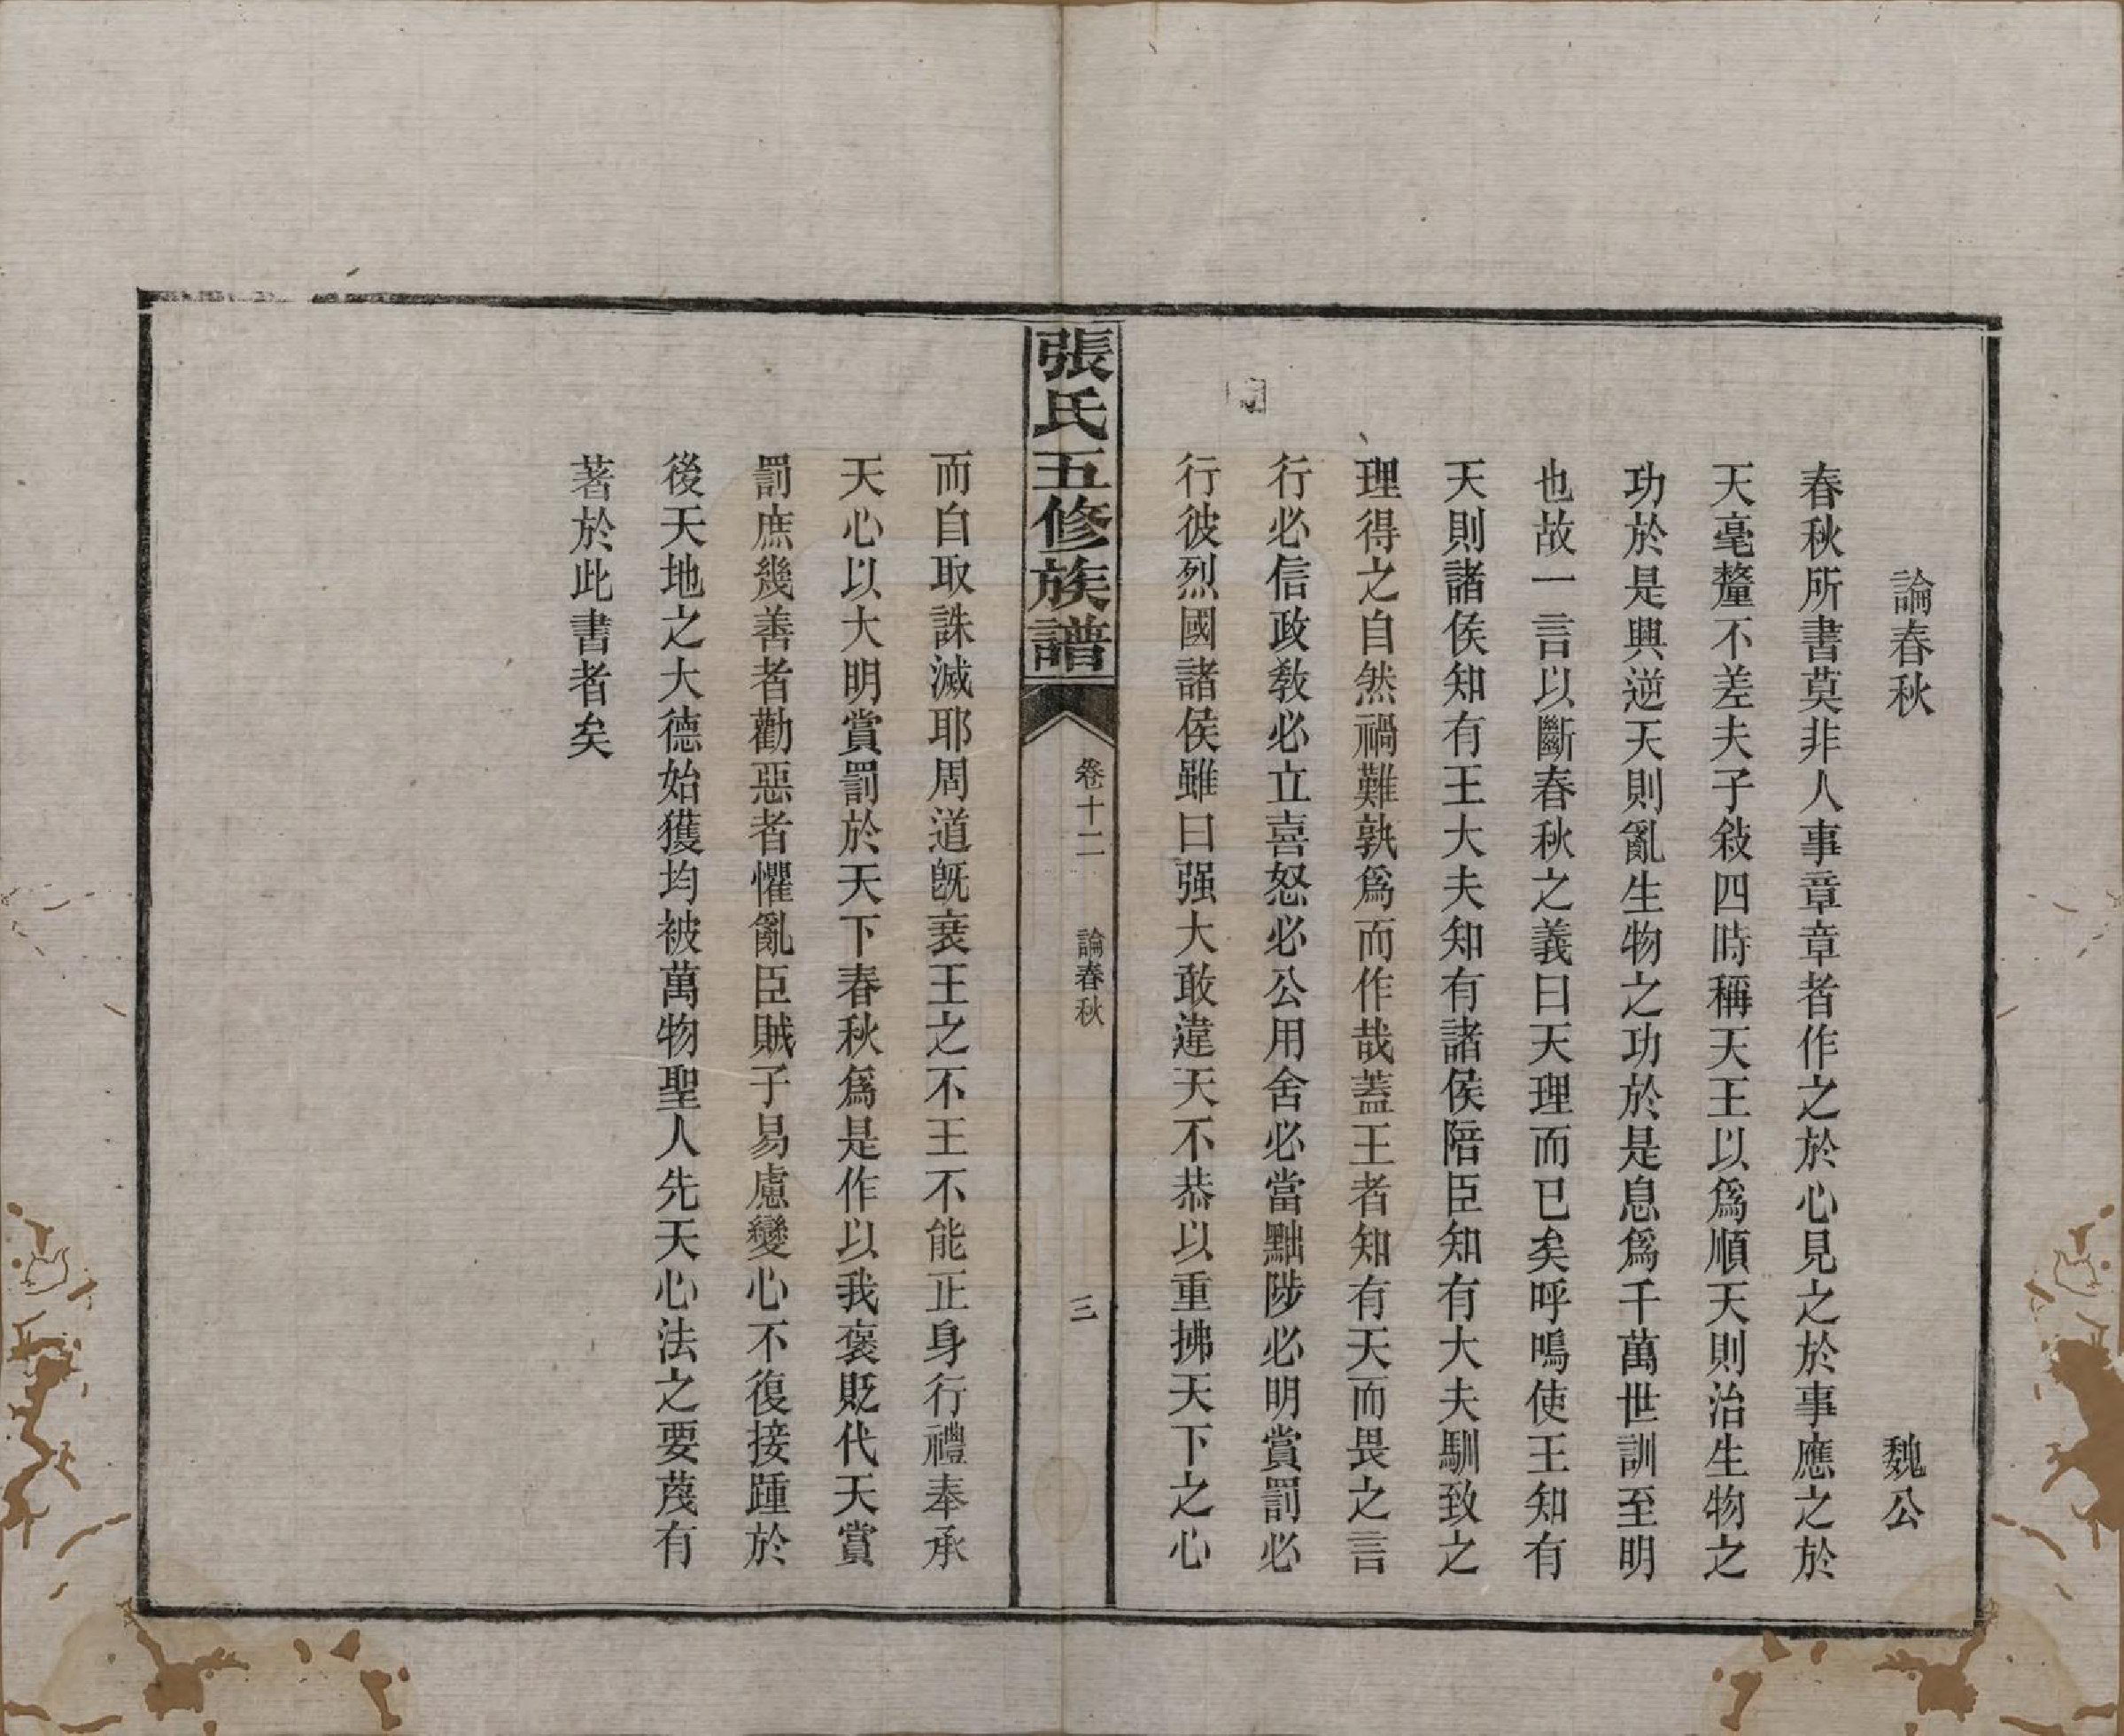 論春秋　魏公
春秋所書莫非人事章章者作之於心見之於事應之於
天毫釐不差夫子敍四時稱天王以爲順天則治生物之
功於是興逆天則亂生物之功於是息爲千萬世訓至明
也故一言以斷春秋之義曰天理而已矣呼嗚使王知有
天則諸侯知有王大夫知有諸侯陪臣知有大夫馴致之
理得之自然禍難孰爲而作哉蓋王者知有天而畏之言
行必信政敎必立喜怒必公用舍必當黜陟必明賞罰必
行彼烈國諸侯雖曰强大敢違天不恭以重拂天下之心
張氏五修族譜
卷十二　論春秋　三
而自取誅滅耶周道旣衰王之不王不能正身行禮奉承
天心以大明賞罰於天下春秋爲是作以我褒貶代天賞
罰庶幾善者勸惡者懼亂臣賊子易慮變心不復接踵於
後天地之大德始獲均被萬物聖人先天心法之要蔑有
著於此書者矣